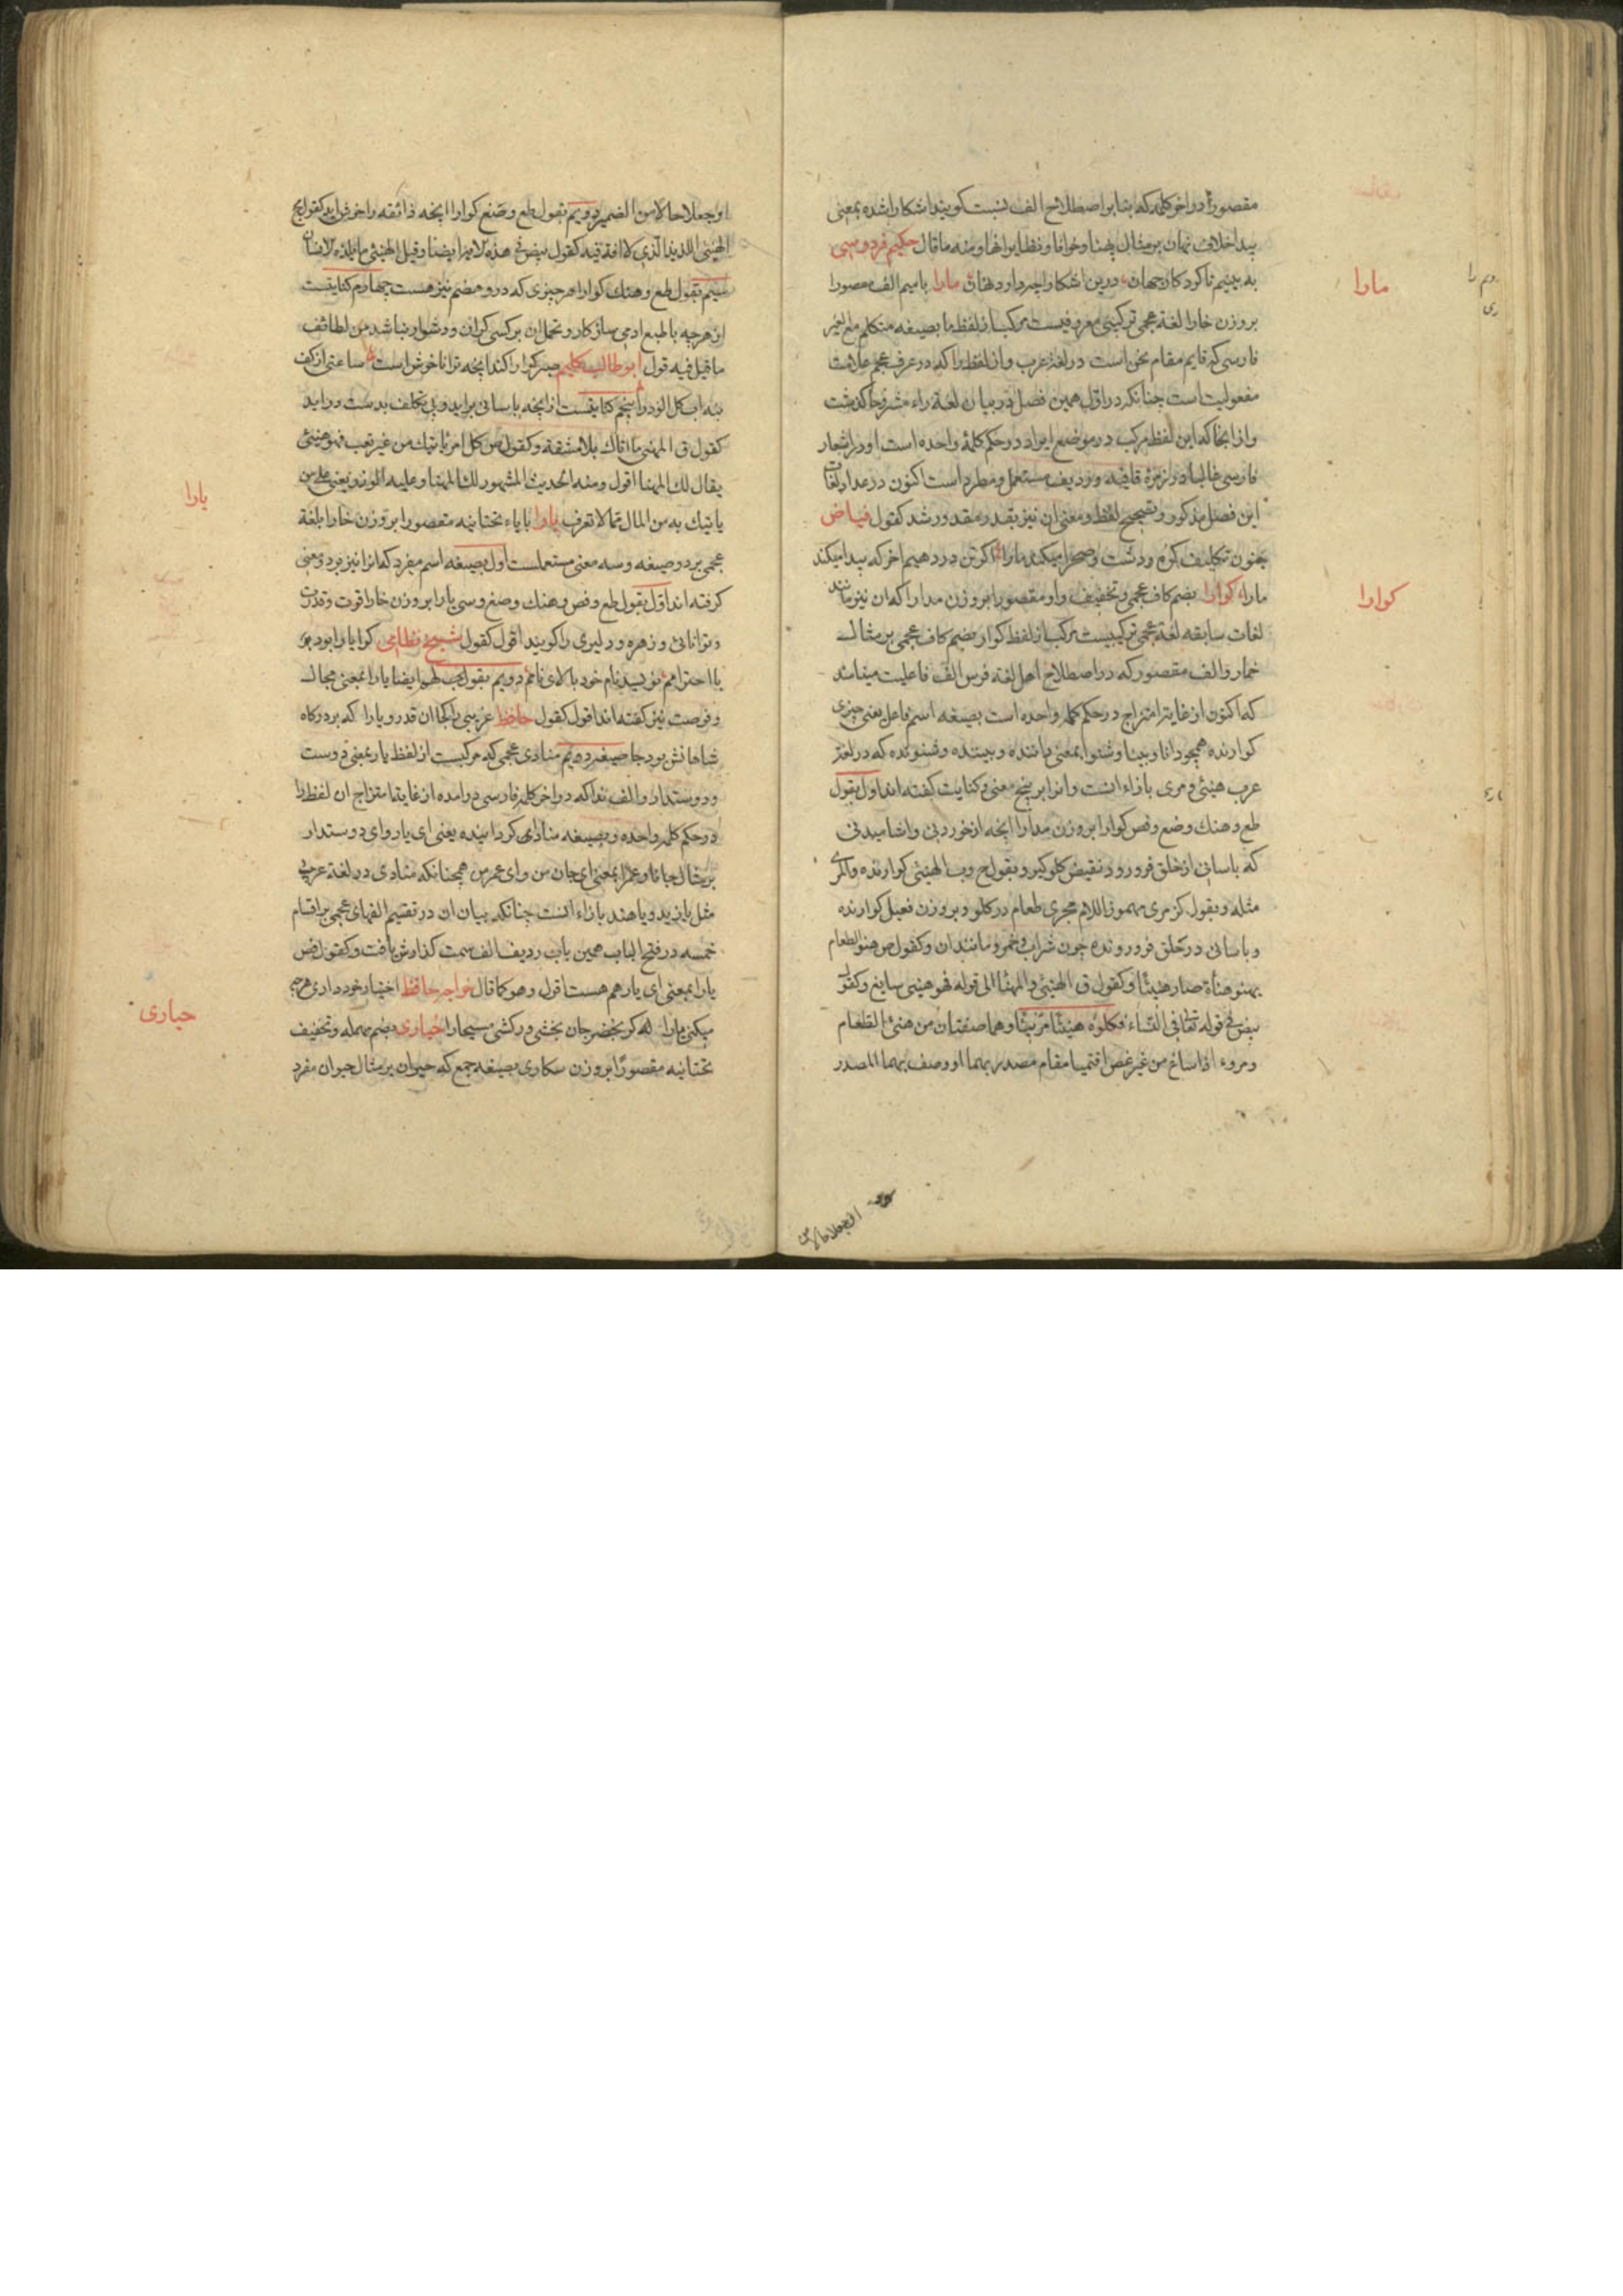 مقصوراً در اخر کلمه که بنابر اصطلاح الف نسبت کویند اشکارا شده بمعنی
پیدا خلاف نهان بر مثال پهنا و خوانا و نظایر انها و منه ما قال حکیم فردوسی
به بینیم تا کرد کار جهان درین اشکارا چه دارد نهان مارا با میم الف مقصورا
بر وزن خارا لغة عجمی ترکیبی معروفیست مرکب از لفظ ما بصیغه متکلم مع الغیر
فارسی که قایم مقام نحن است در لغة عرب و از لفظ را که در عرف عجم علامت
مفعولیت است چنانکه در اول همین فصل در بیان لغة راء مشروحا کذشت
و از انجا که این لفظ مرکب در موضع ایراد در حکم کلمهٔ واحده است و در اشعار
فارسی غالبا در زمرهٔ قافیه و ردیف مستعمل و مطرد است اکنون در عداد لغات
این فصل مذکور و تصحیح لفظ و معنی ان نیز بقدر مقدور شد کقول فیاض
جنون تکلیف کوه و دشت و صحرا میکند مارا اکر تن در دهیم اخر که پیدا میکند
مارا کوارا بضم کاف عجمی و تخفیف واو مقصورا بر وزن مدارا که ان نیز مانند
لغات سابقه لغة عجمی ترکیبیست مرکب از لفظ کوار بضم کاف عجمی بر مثال
خمار و الف مقصور که در اصطلاح اهل لغة فرس الف فاعلیت مینامند
که اکنون از غایت امتزاج در حکم کلمه واحده است بصیغه اسم فاعل یعنی چیزی
کوارنده همچو دانا و بینا و شنوا بمعنی داننده و بیننده و شنونده که در لغة
عرب هنیئ و مری بازاء انست و انرا بر پنج معنی و کنایت کفته اند اول بقول
طع و هنک و ضع و فص کوارا بر وزن مدارا انچه از خوردنی و اشامیدنی
که باسانی از حلق فرو رود نقیض کلو کیر و بقول ح وب الهنیئ کوارنده والمری
مثله و بقول کز مری مهموز اللام مجری طعام در کلو و بر وزن فعیل کوارنده
و باسانی در حلق فرو رونده چون شراب و خمر و مانند ان و کقول ص هنؤ الطعام
یهنؤ هناة صار هنیئا و کقول ق الهنیئ و المهنأ الی قوله فهو هنیئ سایغ و کقول
بیض فی قوله تعالی فی النساء فکلوه هنیئا مریئا و هما صفتان من هنئ الطعام
و مرؤ اذا ساغ من غیر غص اقیمتا مقام مصدریهما او وصف بهما المصدر
مارا
کوارا
او جعلا حالا من الضمیر دویم بقول طع و ضع کوارا انچه ذائقه را خوش اید کقول ح
الهنیئ اللذیذ الذی لا افة فیه کقول بیض فی هذه الایة ایضا و قیل الهنیئ ما یلذه الانسان
سیم بقول طع و هنک کوارا هر چیزی که در و هضم نیز هست چهارم کنایتست
از هر چه با طبع ادمی سازکار و تحمل ان بر کسی کران و دشوار نباشد من لطائف
ما قیل فیه قول ابو طالب کلیم صبر کوارا کند انچه ترا ناخوش است ساعتی از کف
بنه اب کل الود را پنجم کنایتست از انچه باسانی بر اید و بی تکلف بدست در اید
کقول ق المهنئ ما اتاک بلا مشقة و کقول ص کل امر یأتیک من غیر تعب فهو هنیئ
یقال لک المهنا اقول و منه الحدیث المشهور لک المهنا و علیه الوزر یعنی علی من
یاتیک به من المال مما لا تعرف یارا با یاء تحتانیه مقصورا بر وزن خارا بلغة
عجمی بر دو صیغه و سه معنی مستعملست اول بصیغه اسم مفرد که انرا نیز بر دو معنی
کرفته اند اول بقول طع و فص و هنک و صغ و سی یارا بر وزن خارا قوت و قدرت
و توانائی و زهره و دلیری را کویند اقول کقول شیخ نظامی کرا یارا بود بر
با احترامم نویسد نام خود بالای نامم دویم بقول لهما ایضا یارا بمعنی مجال
و فرصت نیز کفته اند اقول کقول حافظ غریبی را کجا ان قدر و یارا که بر درکاه
شاهانش بود جا صیغه دویم منادی عجمی که مرکبست از لفظ یار بمعنی دوست
و دوستدار و الف ندا که در اخر کلمه فارسی در امده از غایت امتزاج ان لفظ را
در حکم کلمه واحده و بصیغه منادی کردانیده یعنی ای یار و ای دوستدار
بر مثال جانا و عمرا بمعنی ای جان من و ای عمر من همچنانکه منادی در لغة عربی
مثل یا زید و یا هند بازاء انست چنانکه بیان ان در تقسیم الفهای عجمی بر اقسام
خمسه در فتح الباب همین باب ردیف الف سمت کذارش یافت و کقول فص
یارا بمعنی ای یار هم هست اقول و هو کما قال خواجه حافظ اختیار خود داری هر چه
میکنی یارا کر بخضر جان بخشی ور کشی مسیحا را حیاری بضم مهمله و تخفیف
تحتانیه مقصورا بر وزن سکاری بصیغه جمع که حیران بر مثال حیران مفرد
یارا
حیاری
او جعلا حالا من